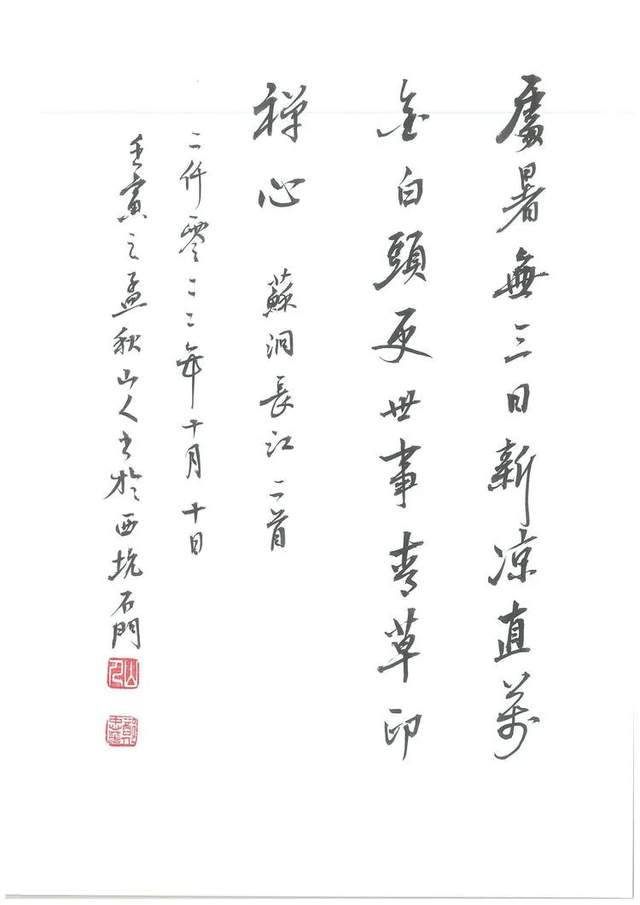 處暑無三日新凉直萬
金白頭更世事青草印
禪心 蘇泂長江二首
二仟零二二年十月十日
壬寅之孟秋山人書於西坑石門
山人